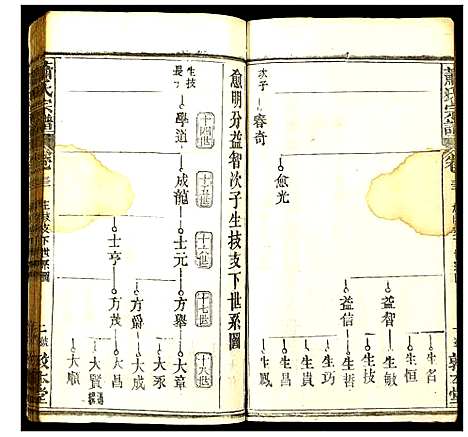 蕭氏宗譜
次子
睿奇
愈光
益智
益信
生名
生恒
生敏
生技
生哲
生巧
生員
生昌
生鳳
敦本堂
愈明分益智次子生技支下世系圖
十四世
十五世
十六世
十七世
十八世
生技
長子
學道
成龍
士元
士亨
方舉
方爵
方茂
大章
大成
大承
大昌
大賢
大順
蕭氏宗譜
生技支下世系圖
敦本堂